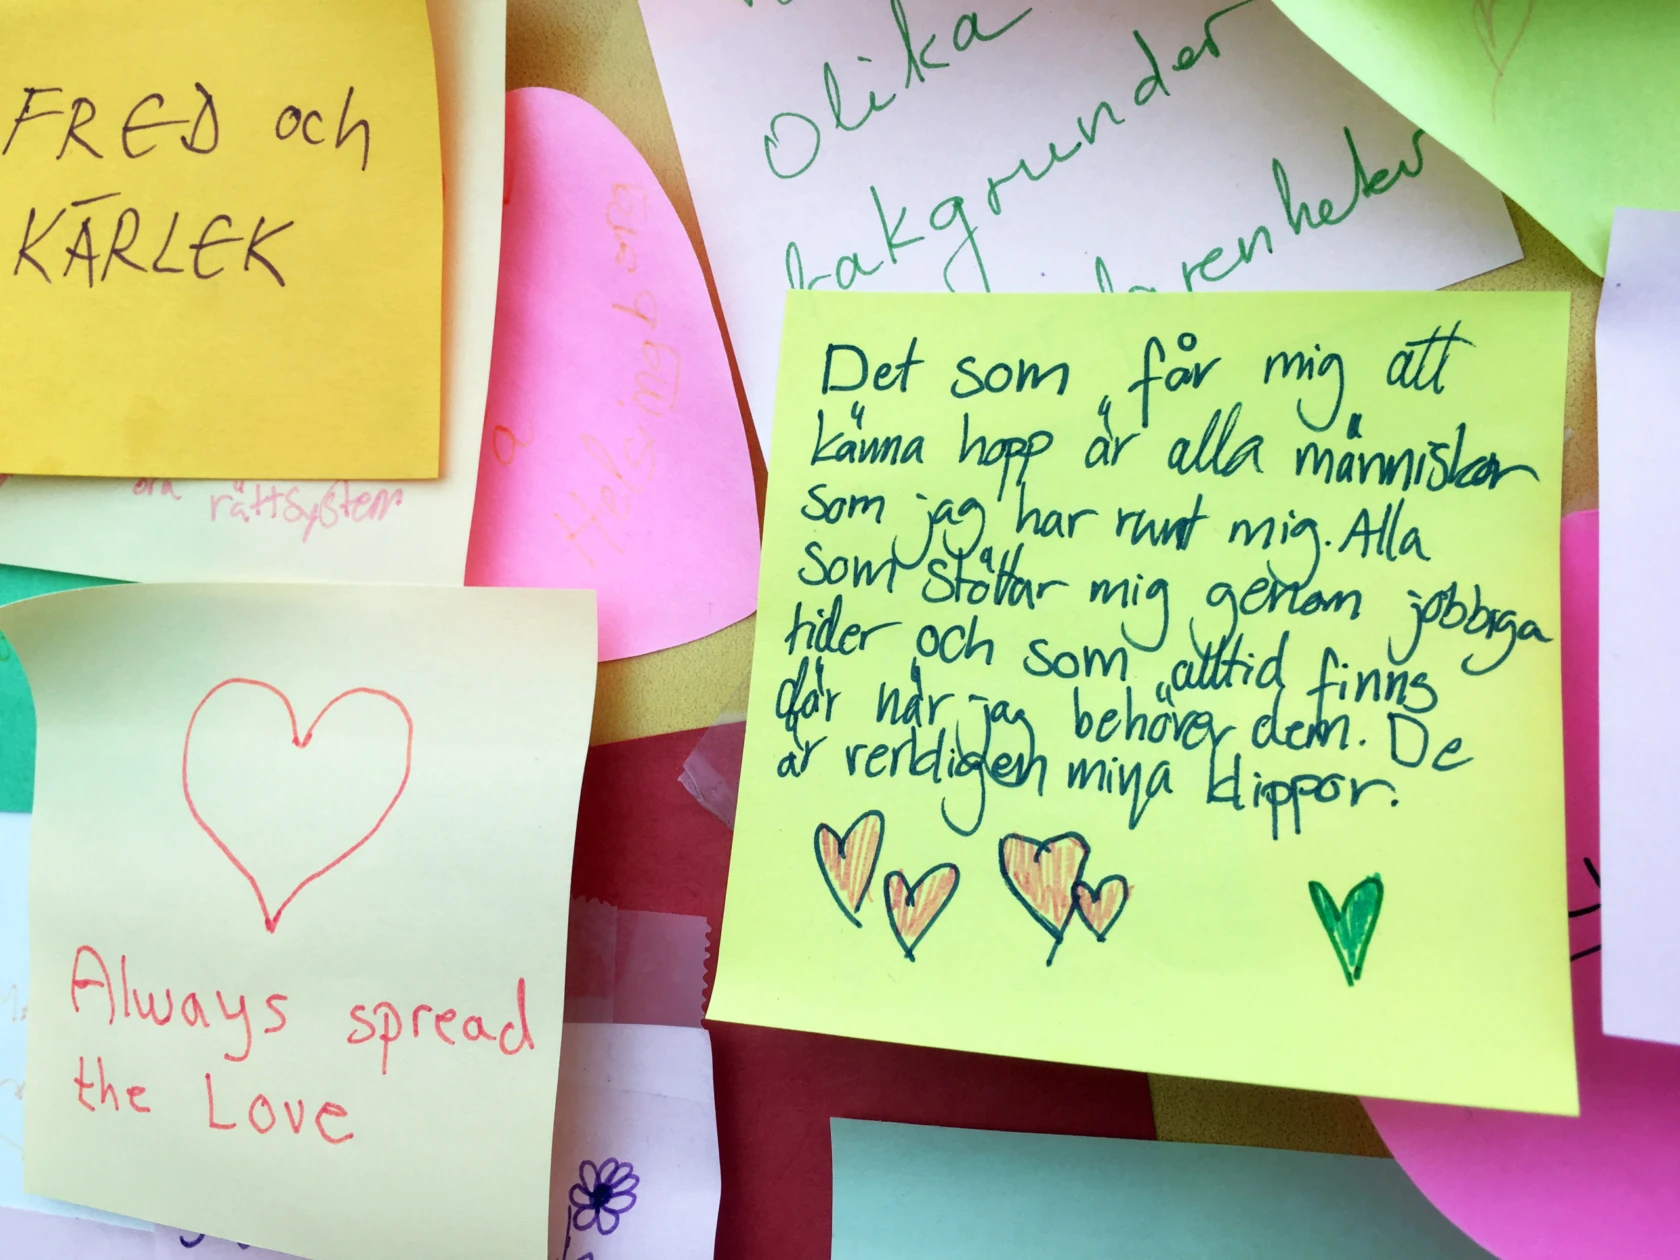 FRED och
KÄRLEK
Olika
bakgrunder
rättsystem
Helsingborg
Det som får mig att
känna hopp är alla människor
som jag har runt mig. Alla
som stöttar mig genom jobbiga
tider och som alltid finns
där när jag behöver dem. De
är verkligen mina klippor.
Always spread
the Love